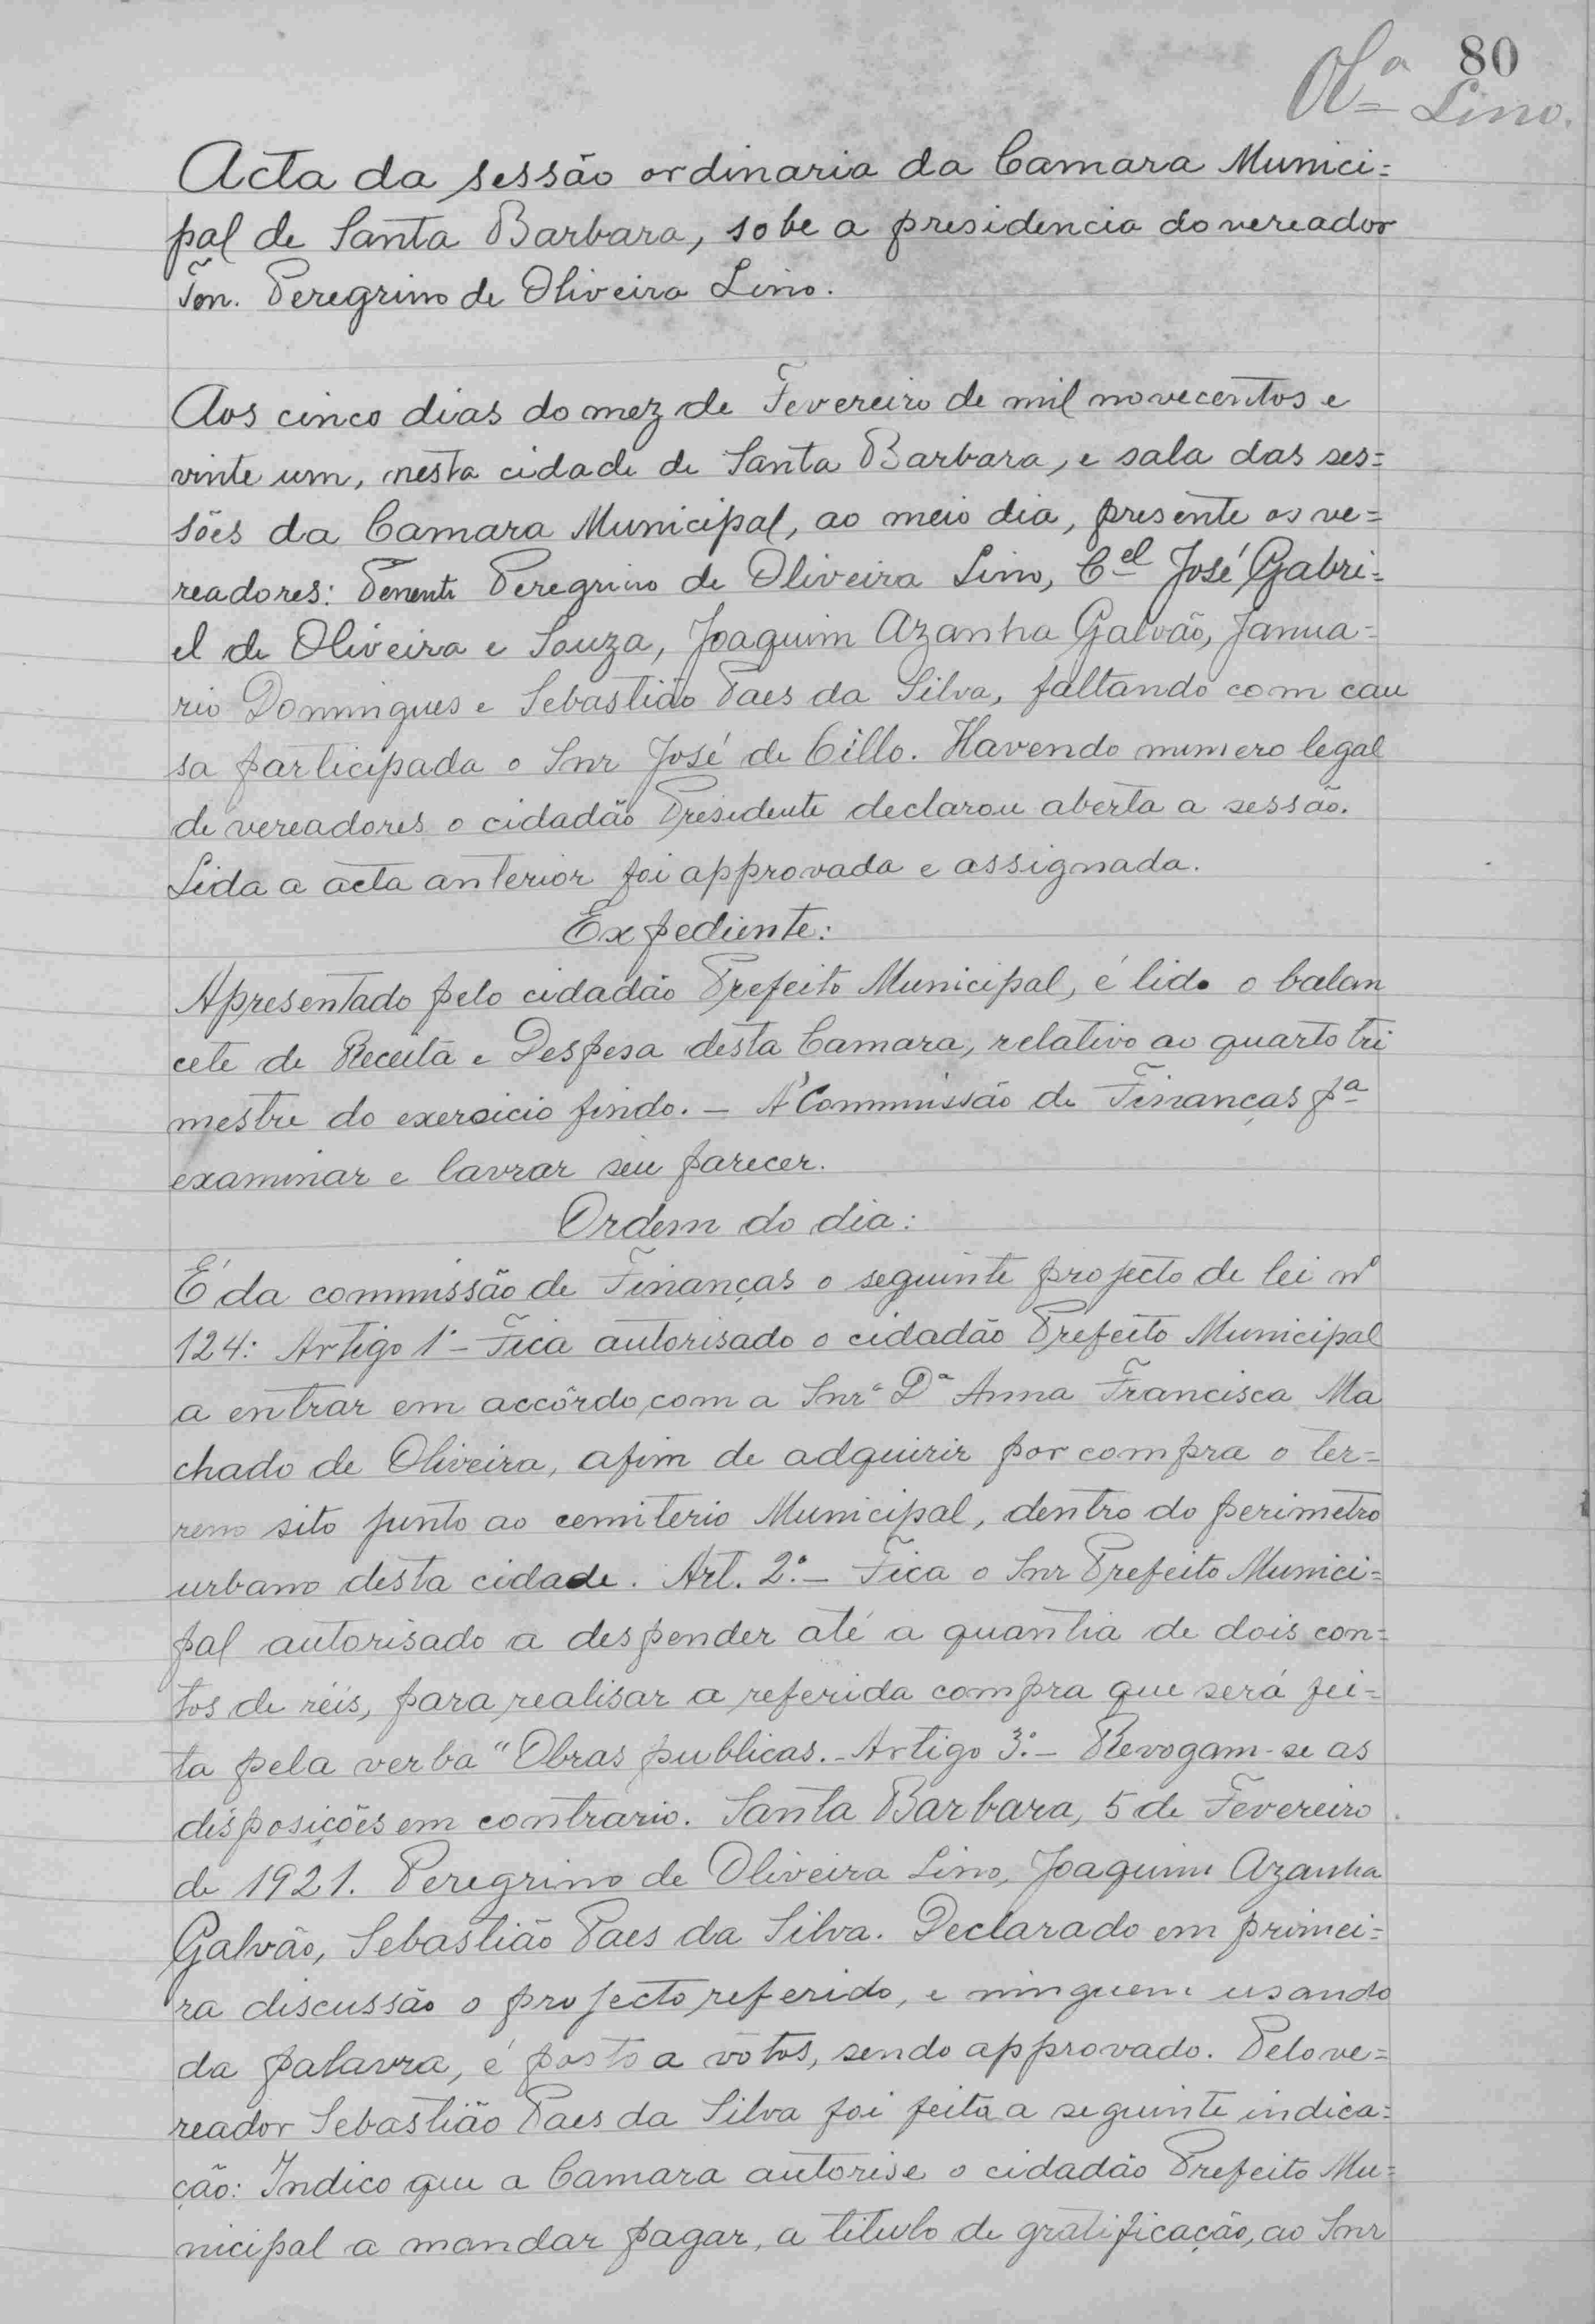 80
Olª Lino.
Acta da sessão ordinaria da Camara Munici=
pal de Santa Barbara, sobe a presidencia do vereador
Ten. Peregrino de Oliveira Lino.
Aos cinco dias do mez de Fevereiro de mil novecentos e
vinte um, nesta cidade de Santa Barbara, e sala das ses=
sões da Camara Municipal, ao meio dia, presente os ve=
readores: Tenente Peregrino de Oliveira Lino, Cel José Gabri=
el de Oliveira e Souza, Joaquim Azanha Galvão, Janua=
rio Domingues e Sebastião Paes da Silva, faltando com cau
sa participada o Snr José de Cillo. Havendo numero legal
de vereadores o cidadão Presidente declarou aberta a sessão.
Lida a acta anterior foi approvada e assignada.
Expediente:
Apresentado pelo cidadão Prefeito Municipal, é lido o balan
cete de Receita e Despesa desta Camara, relativo ao quarto tri
mestre do exercicio findo. – A' Commissão de Finanças pª
examinar e lavrar seu parecer.
Ordem do dia:
E' da commissão de Finanças o seguinte projecto de lei nº
124: Artigo 1º – Fica autorisado o cidadão Prefeito Municipal
a entrar em accôrdo, com a Snrª Dª Anna Francisca Ma
chado de Oliveira, afim de adquirir por compra o ter=
reno sito junto ao cemiterio Municipal, dentro do perimetro
urbano desta cidade. Art. 2º – Fica o Snr Prefeito Munici=
pal autorisado a despender até a quantia de dois con=
tos de réis, para realisar a referida compra que será fei=
ta pela verba "Obras publicas. – Artigo 3º – Revogam-se as
disposições em contrario. Santa Barbara, 5 de Fevereiro
de 1921. Peregrino de Oliveira Lino, Joaquim Azanha
Galvão, Sebastião Paes da Silva. Declarado em primei=
ra discussão o projecto referido, e ninguem usando
da palavra, é posto a vótos, sendo approvado. Pelo ve=
reador Sebastião Paes da Silva foi feita a seguinte indica=
ção: Indico que a Camara autorise o cidadão Prefeito Mu=
nicipal a mandar pagar, a titulo de gratificação, ao Snr